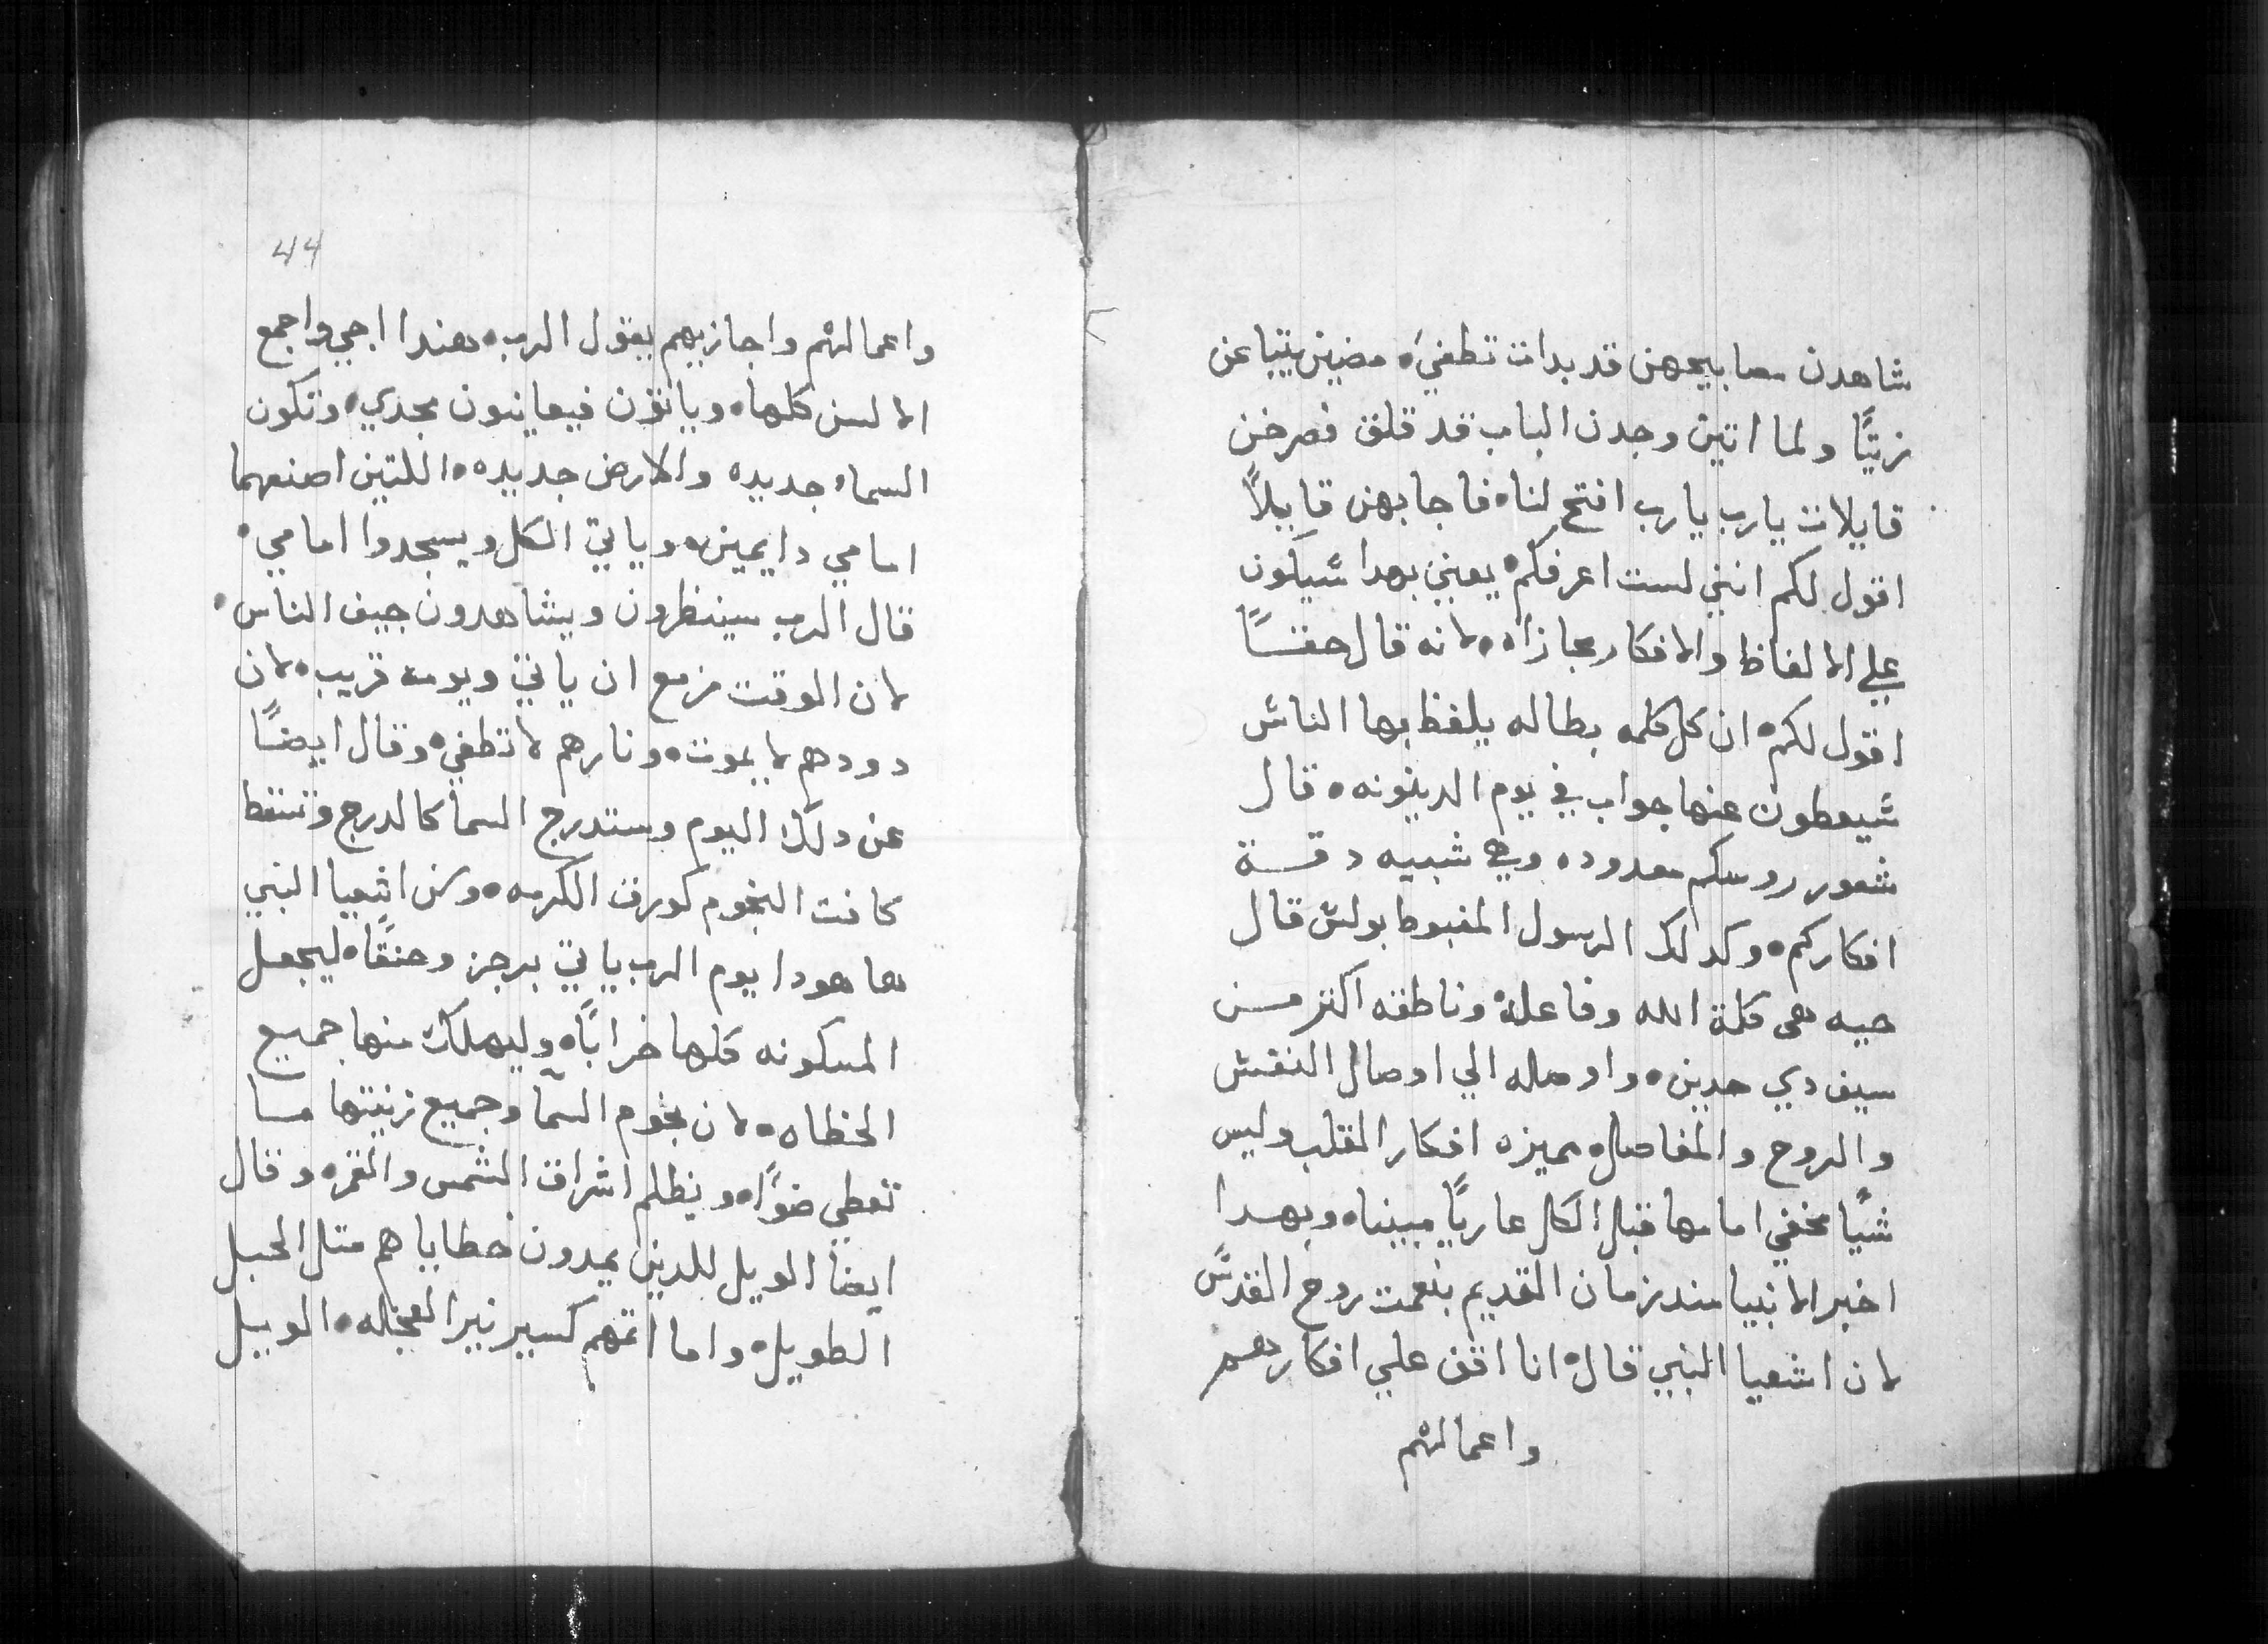 شاهدن مصابيحهن قد بدات تطفيَ، مضين يتباعن
زيتًا ولما اتين وجدن الباب قد قلق فصرخن
قايلات يارب يارب افتح لنا، فاجابهن قايلاً
اقول لكم انني لست اعرفكم، يعني بهدا سيكون
علي الالفاظ والافكار مجازاه، لانه قال حقًا
اقول لكم، ان كل كلمه بطاله يلفظ بها الناس
سيعطون عنها جواب في يوم الدينونه، قال
شعور روسكم معدوده وهي شبيه دقة
افكاركم، وكدلك الرسول المغبوط بولس قال
حيه هي كلمة الله وفاعلة وناطقه اكتر من
سيف دي حدين، واوصله الي اوصال النفس
والروح والمفاصل، مميزه افكار القلب وليس
شيًا مخفي امامها قبل الكل عاريًا مبينا، وبهدا
اخبر الانبيا مند زمان القديم بنعمت روح القدس
لان اشعيا النبي قال، انا اقف علي افكارهم
واعمالهم
44
واعمالهم واجازيهم يقول الرب، هندا اجي واجمع
الالسن كلها، وياتون فيعاينون مجدي، وتكون
السماء جديده والارض جديده، اللتين اصنعهما
امامي دايمين، وياتي الكل ويسجدوا امامي،
قال الرب سينظرون ويشاهدون جيف الناس،
لان الوقت مزمع ان ياتي ويومه قريب، لان
دودهم لا يموت، ونارهم لا تطفي، وقال ايضًا
عن دلك اليوم وستدرج السما كالدرج وتسقط
كافت النجوم كورق الكرمه، ومن اشعيا النبي
ها هودا يوم الرب ياتي برجز وحنقًا، ليجعل
المسكونه كلها خرابًا، وليهلك منها جميع
الخطاه، لان نجوم السما وجميع زينتها ما
تعطي ضوًا، ويظلم اشراق الشمس والقمر، وقال
ايضا الويل للدين يمدون خطاياهم متل الحبل
الطويل، واما اتمهم كسير نير العجله، الويل